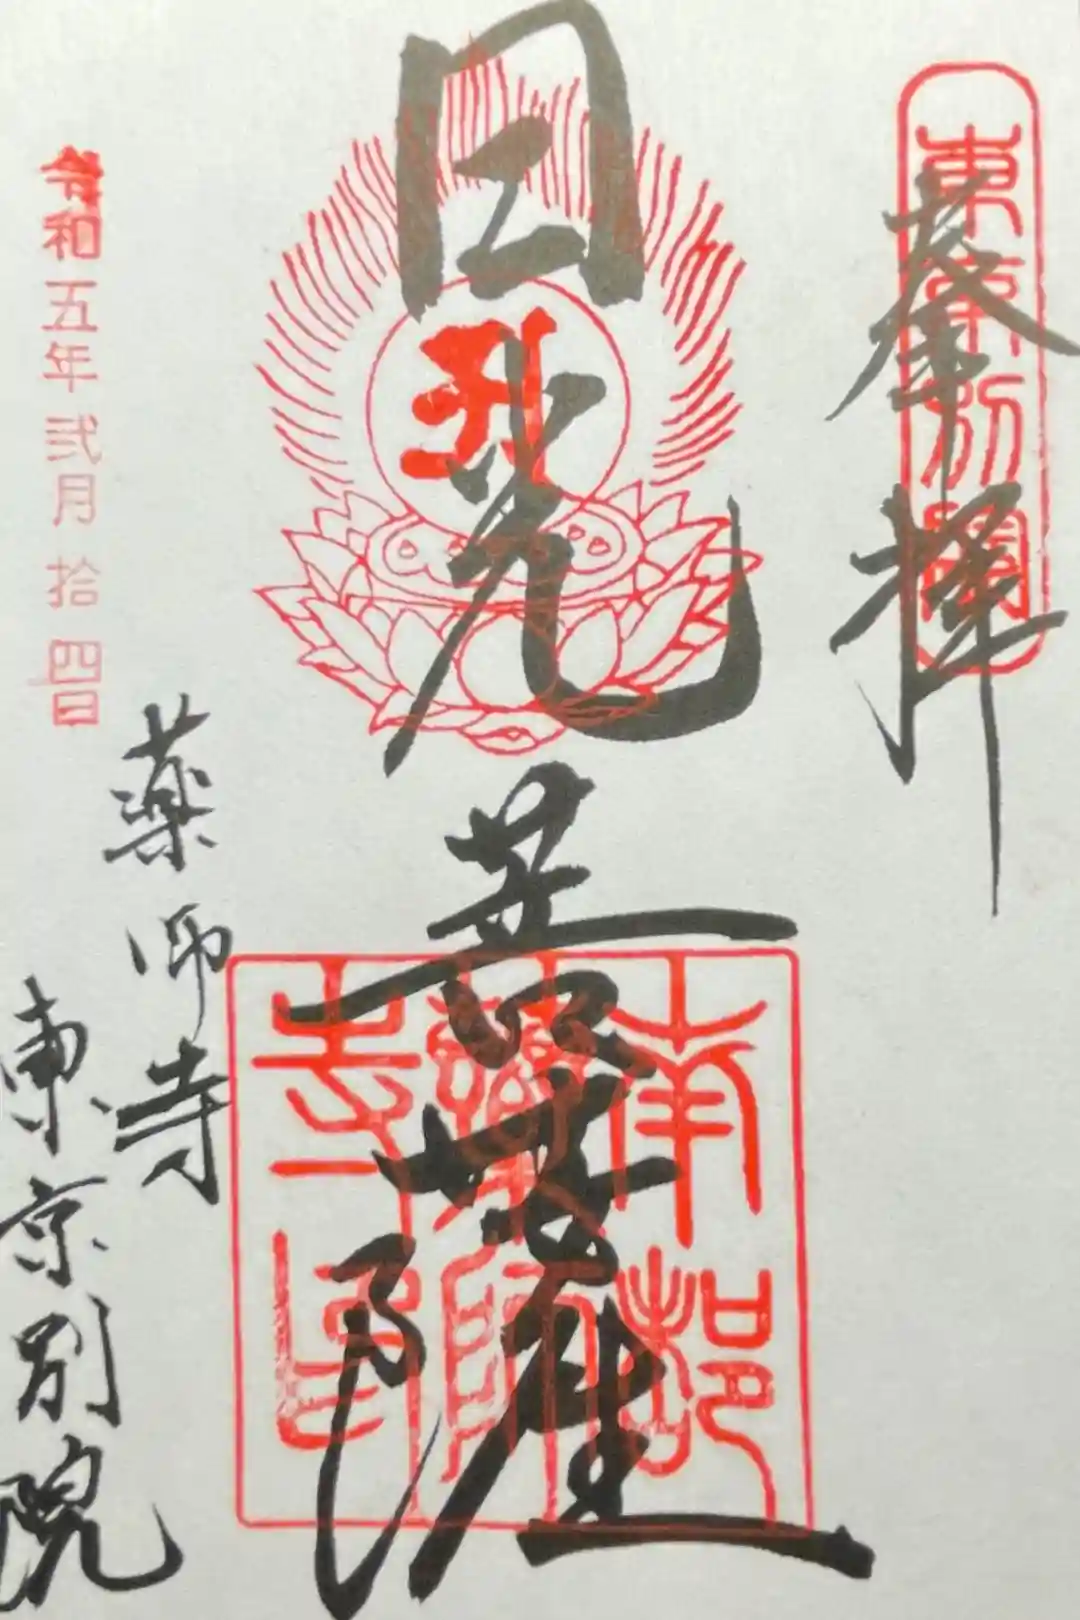 奉拝
東京別院
日光菩薩
南都
薬師
寺印
薬師寺
東京別院
令和五年弐月拾四日